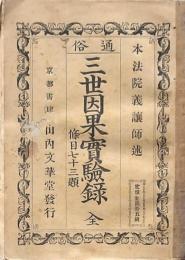 通俗
本法院義讓師述
三世因果實驗錄 全
條目七十三題
京都書肆 山内文華堂發行